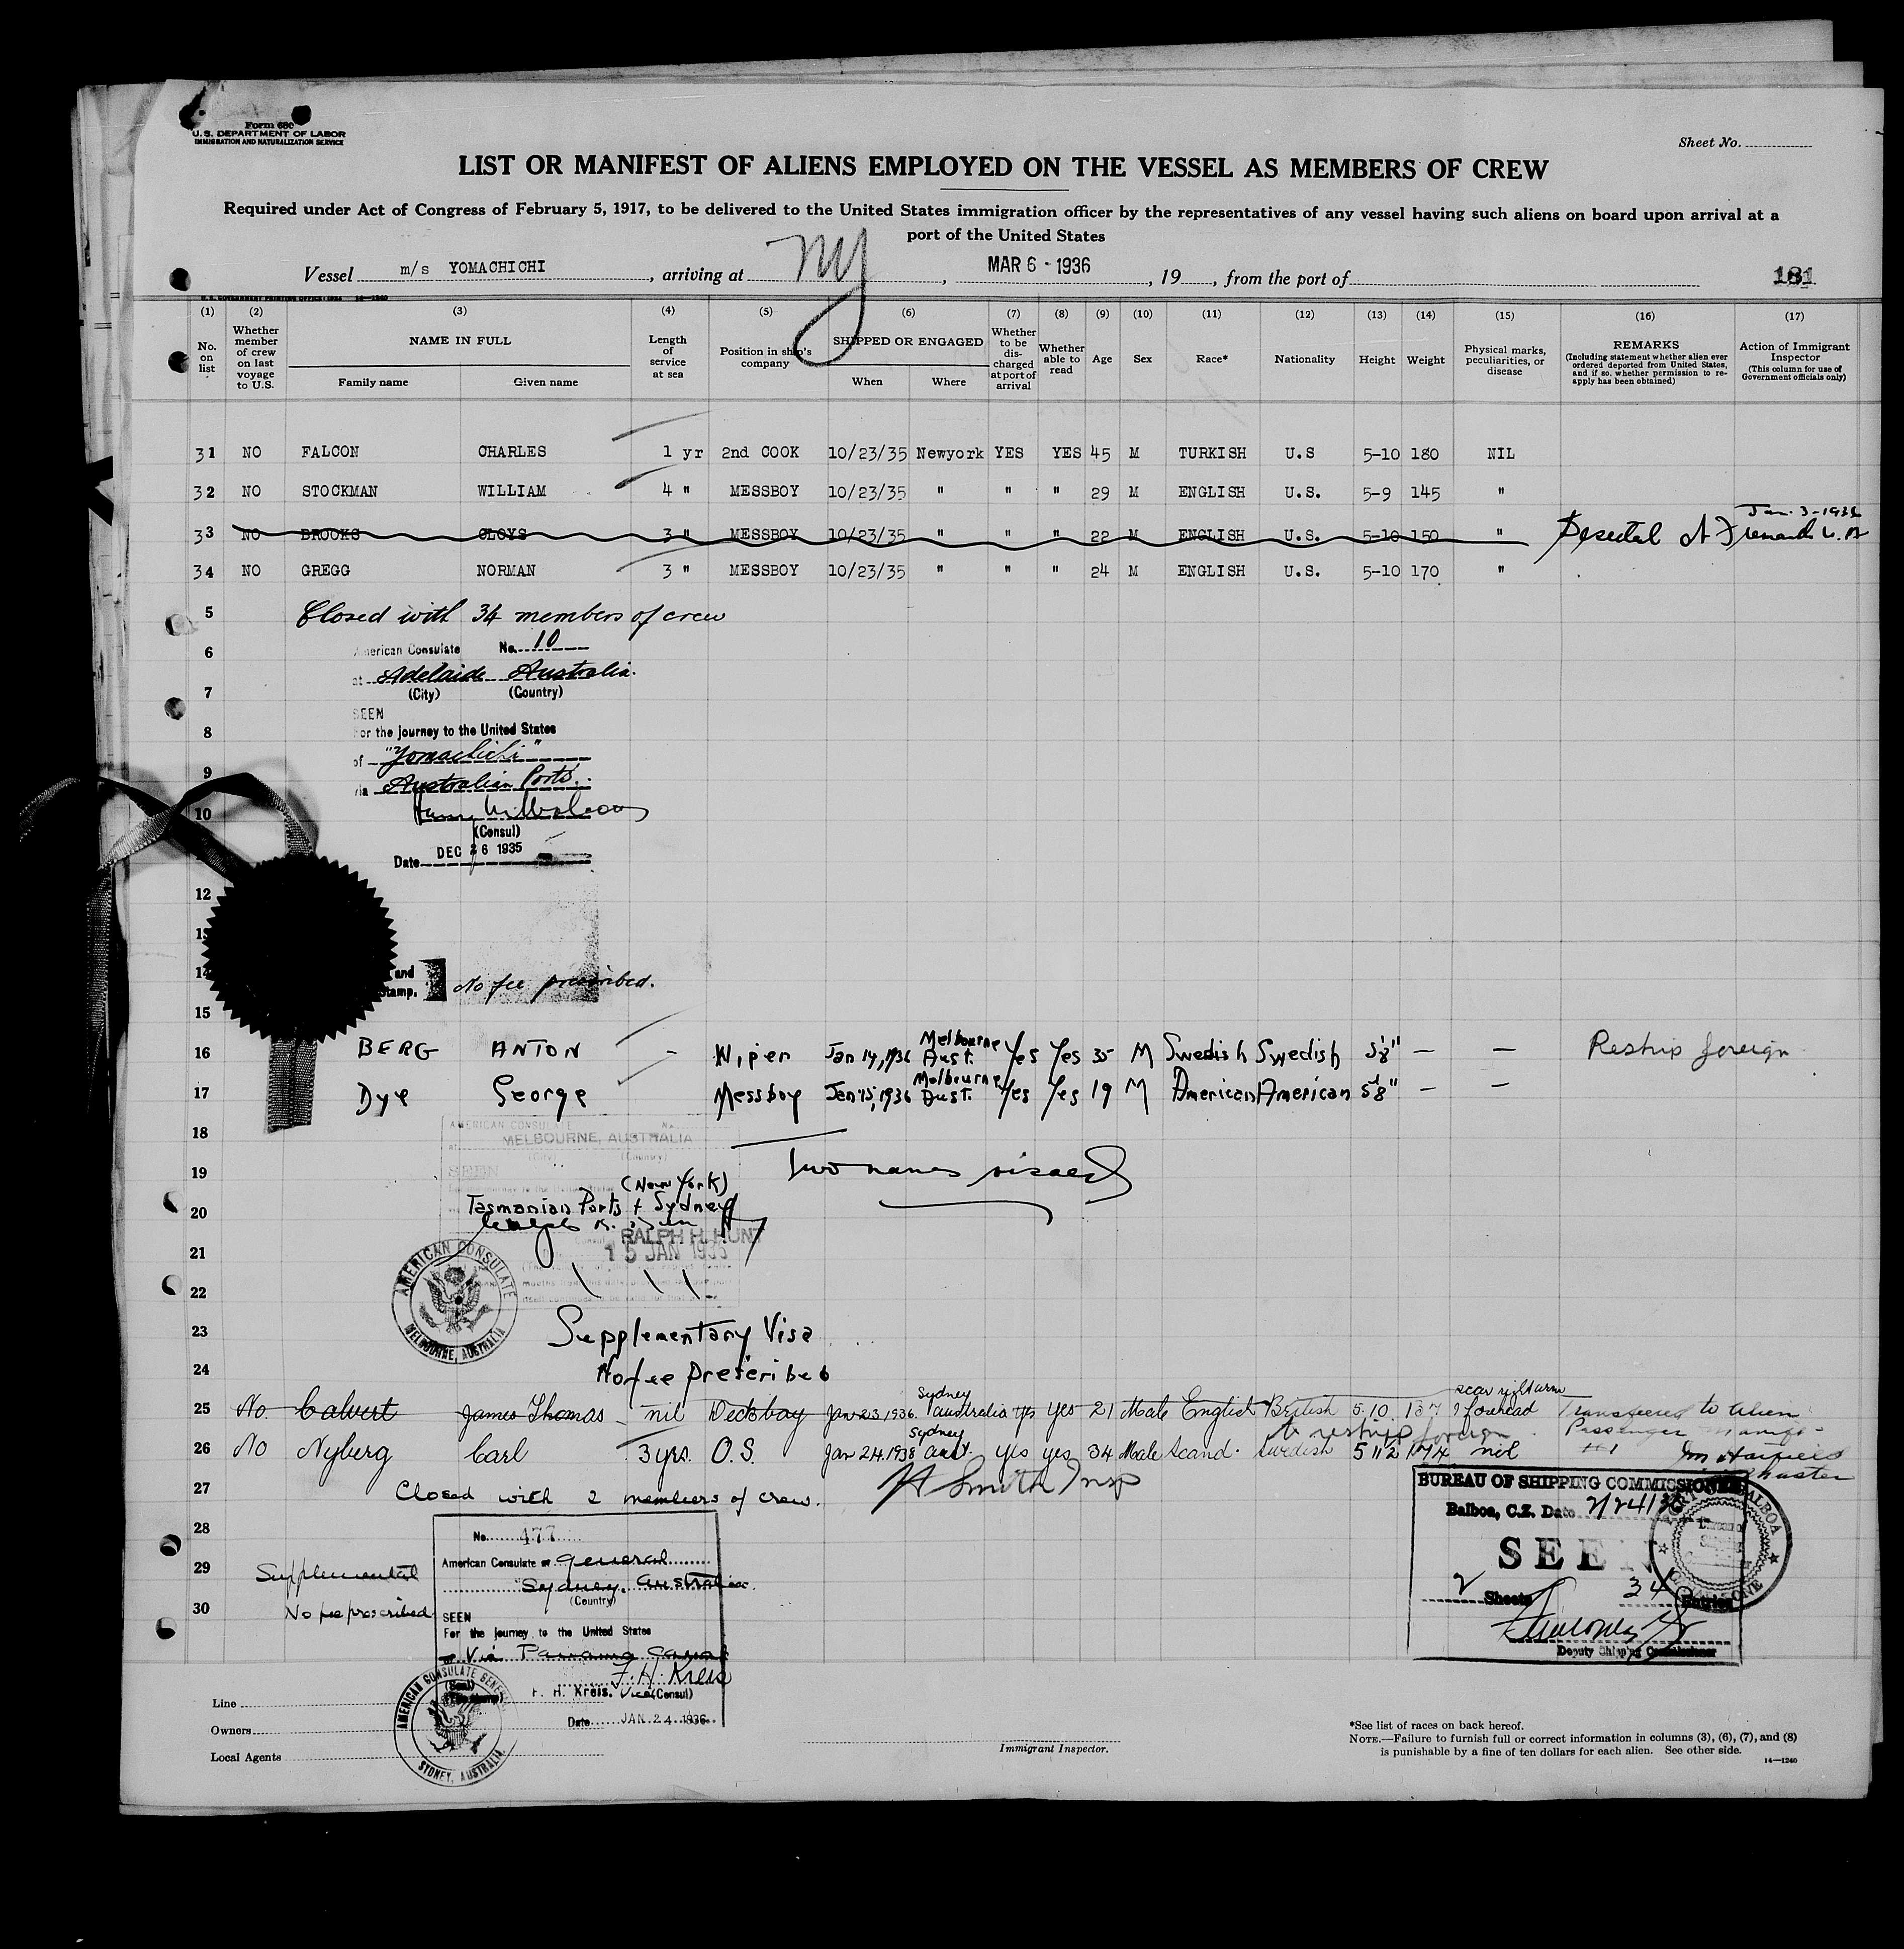 Form 680
U.S. DEPARTMENT OF LABOR
IMMIGRATION AND NATURALIZATION SERVICE
Sheet No.
LIST OR MANIFEST OF ALIENS EMPLOYED ON THE VESSEL AS MEMBERS OF CREW
Required under Act of Congress of February 5, 1917, to be delivered to the United States immigration officer by the representatives of any vessel having such aliens on board upon arrival at a
port of the United States
Vessel m/s YOMACHICHI, arriving at NY, MAR 6 - 1936, 19, from the port of
181
(1) (2) (3) (4) (5) (6) (7) (8) (9) (10) (11) (12) (13) (14) (15) (16) (17)
No. on list
Whether member of crew on last voyage to U.S.
NAME IN FULL
Family name Given name
Length of service at sea
Position in ship's company
SHIPPED OR ENGAGED
When Where
Whether to be discharged at port of arrival
Whether able to read
Age
Sex
Race*
Nationality
Height
Weight
Physical marks, peculiarities, or disease
REMARKS
(Including statement whether alien ever ordered deported from United States, and if so, whether permission to reapply has been obtained)
Action of Immigrant Inspector
(This column for use of Government officials only)
31 NO FALCON CHARLES 1 yr 2nd COOK 10/23/35 Newyork YES YES 45 M TURKISH U.S 5-10 180 NIL
32 NO STOCKMAN WILLIAM 4 " MESSBOY 10/23/35 " " " 29 M ENGLISH U.S. 5-9 145 "
Jan. 3-1936
33 NO BROOKS CLOYS 3 " MESSBOY 10/23/35 " " " 22 M ENGLISH U.S. 5-10 150 " Deserted at Fremantle W. A
34 NO GREGG NORMAN 3 " MESSBOY 10/23/35 " " " 24 M ENGLISH U.S. 5-10 170 "
5 Closed with 34 members of crew
6 American Consulate No. 10
at Adelaide Australia.
7 (City) (Country)
SEEN
8 For the journey to the United States
of "Yomachichi"
9 via Australian Ports.
10
(Consul)
Date DEC 26 1935
12
13
14 and
stamp. No fee prescribed.
15
16 BERG ANTON - Wiper Jan 14, 1936 Melbourne Aust. Yes Yes 35 M Swedish Swedish 5'8" — — Reship foreign
17 Dye George Messboy Jan 15, 1936 Melbourne Aust. Yes Yes 19 M American American 5'8" - —
18 AMERICAN CONSULATE No.
MELBOURNE, AUSTRALIA
(City) (Country)
19 SEEN
Two names visaed
(New York)
20 Tasmanian Ports & Sydney
RALPH H. HUNT
21 15 JAN 1936
AMERICAN CONSULATE
MELBOURNE, AUSTRALIA
22
23 Supplementary Visa
24 No fee prescribed
25 No. Calvert James Thomas - nil Decksboy Jan 23 1936. Sydney Australia yes yes 21 Male English British 5.10 137 forehead Transferred to Alien
to reship foreign
Passenger Manifest
#1
26 No Nyberg Carl 3 yrs. O.S. Jan 24. 1936 Sydney Aust. yes yes 34 Male Scand. Swedish 5 11 2 174 nil
Master
27 Closed with 2 members of crew.
H Smith Insp
BUREAU OF SHIPPING COMMISSIONER
Balboa, C.Z. Date 2/24/36
SEEN
2 Sheets 34 Entries
Deputy Shipping Commissioner
BALBOA
CANAL ZONE
28 No. 477
American Consulate General
29 Supplemental
Sydney, Australia.
(Country)
30 No fee prescribed
SEEN
For the journey to the United States
Via Panama Canal
F. H. Kreis
(Seal)
F. H. Kreis. Vice (Consul)
Date JAN. 24. 1936
AMERICAN CONSULATE GENERAL
SYDNEY, AUSTRALIA
Line
Owners
Local Agents
Immigrant Inspector.
*See list of races on back hereof.
NOTE.—Failure to furnish full or correct information in columns (3), (6), (7), and (8)
is punishable by a fine of ten dollars for each alien. See other side.
14—1240